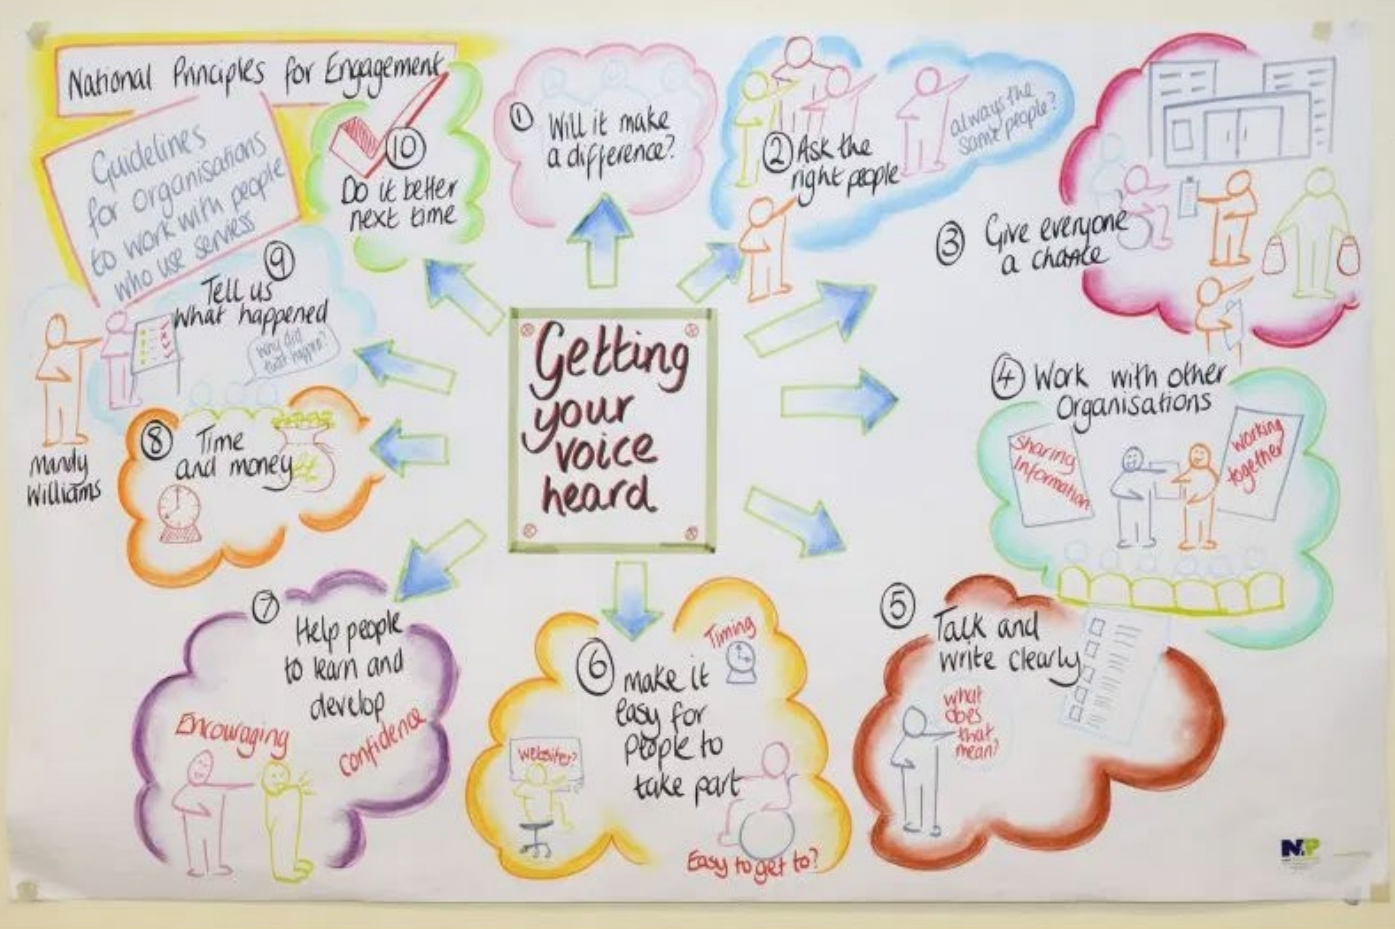 National Principles for Engagement
Guidelines
for Organisations
to work with people
who use serviess
Getting
your
voice
heard
①
Will it make
a difference?
② Ask the
right people
always the
same people?
③ Give everyone
a chance
④ Work with other
Organisations
Sharing
Information
working
together
⑤ Talk and
write clearly
what
does
that
mean?
⑥ make it
easy for
people to
take part
Timing
websites?
Easy to get to?
⑦ Help people
to learn and
develop
Encouraging
confidence
⑧ Time
and money
⑨
Tell us
what happened
why did
that happen?
Mandy
Williams
⑩
Do it better
next time